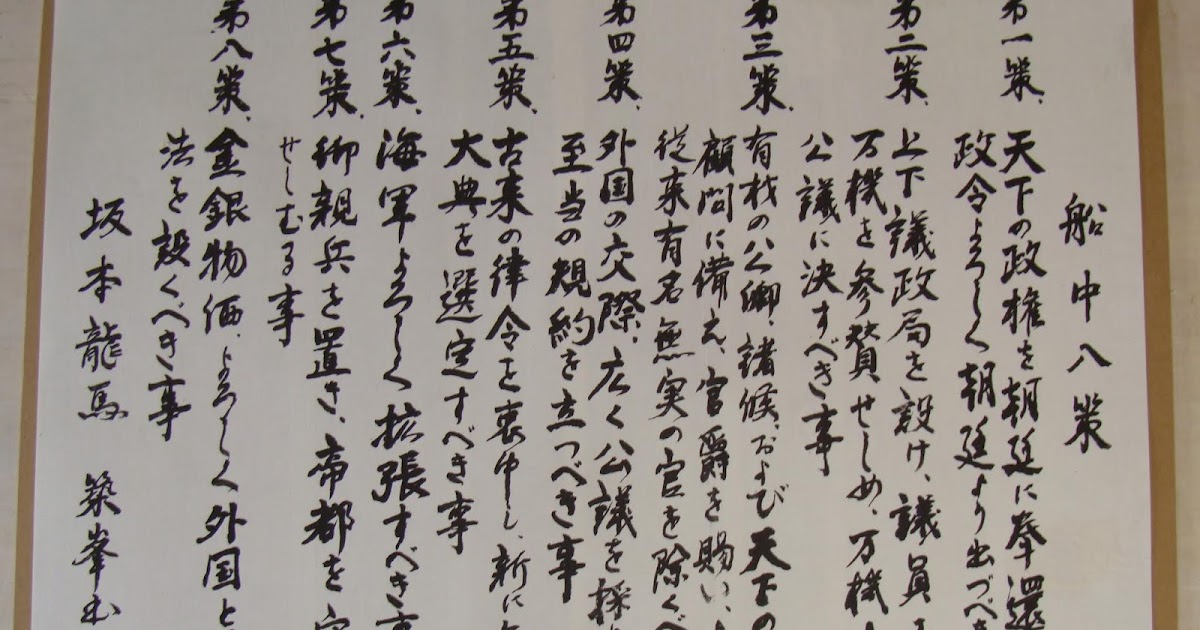 船中八策
第一策、天下の政権を朝廷に奉還
政令よろしく朝廷より出づべき
第二策、上下議政局を設け、議員を
万機を参賛せしめ、万機
公議に決すべき事
第三策、有材の公卿、諸候、および天下の
顧問に備え、官爵を賜い、
従来有名無実の官を除くべ
第四策、外国の交際、広く公議を採
至当の規約を立つべき事
第五策、古来の律令を衷中し、新に
大典を選定すべき事
第六策、海軍よろしく拡張すべき事
第七策、御親兵を置き、帝都を守
せしむる事
第八策、金銀物価、よろしく外国と
法を設くべき事
坂本龍馬 築峯书